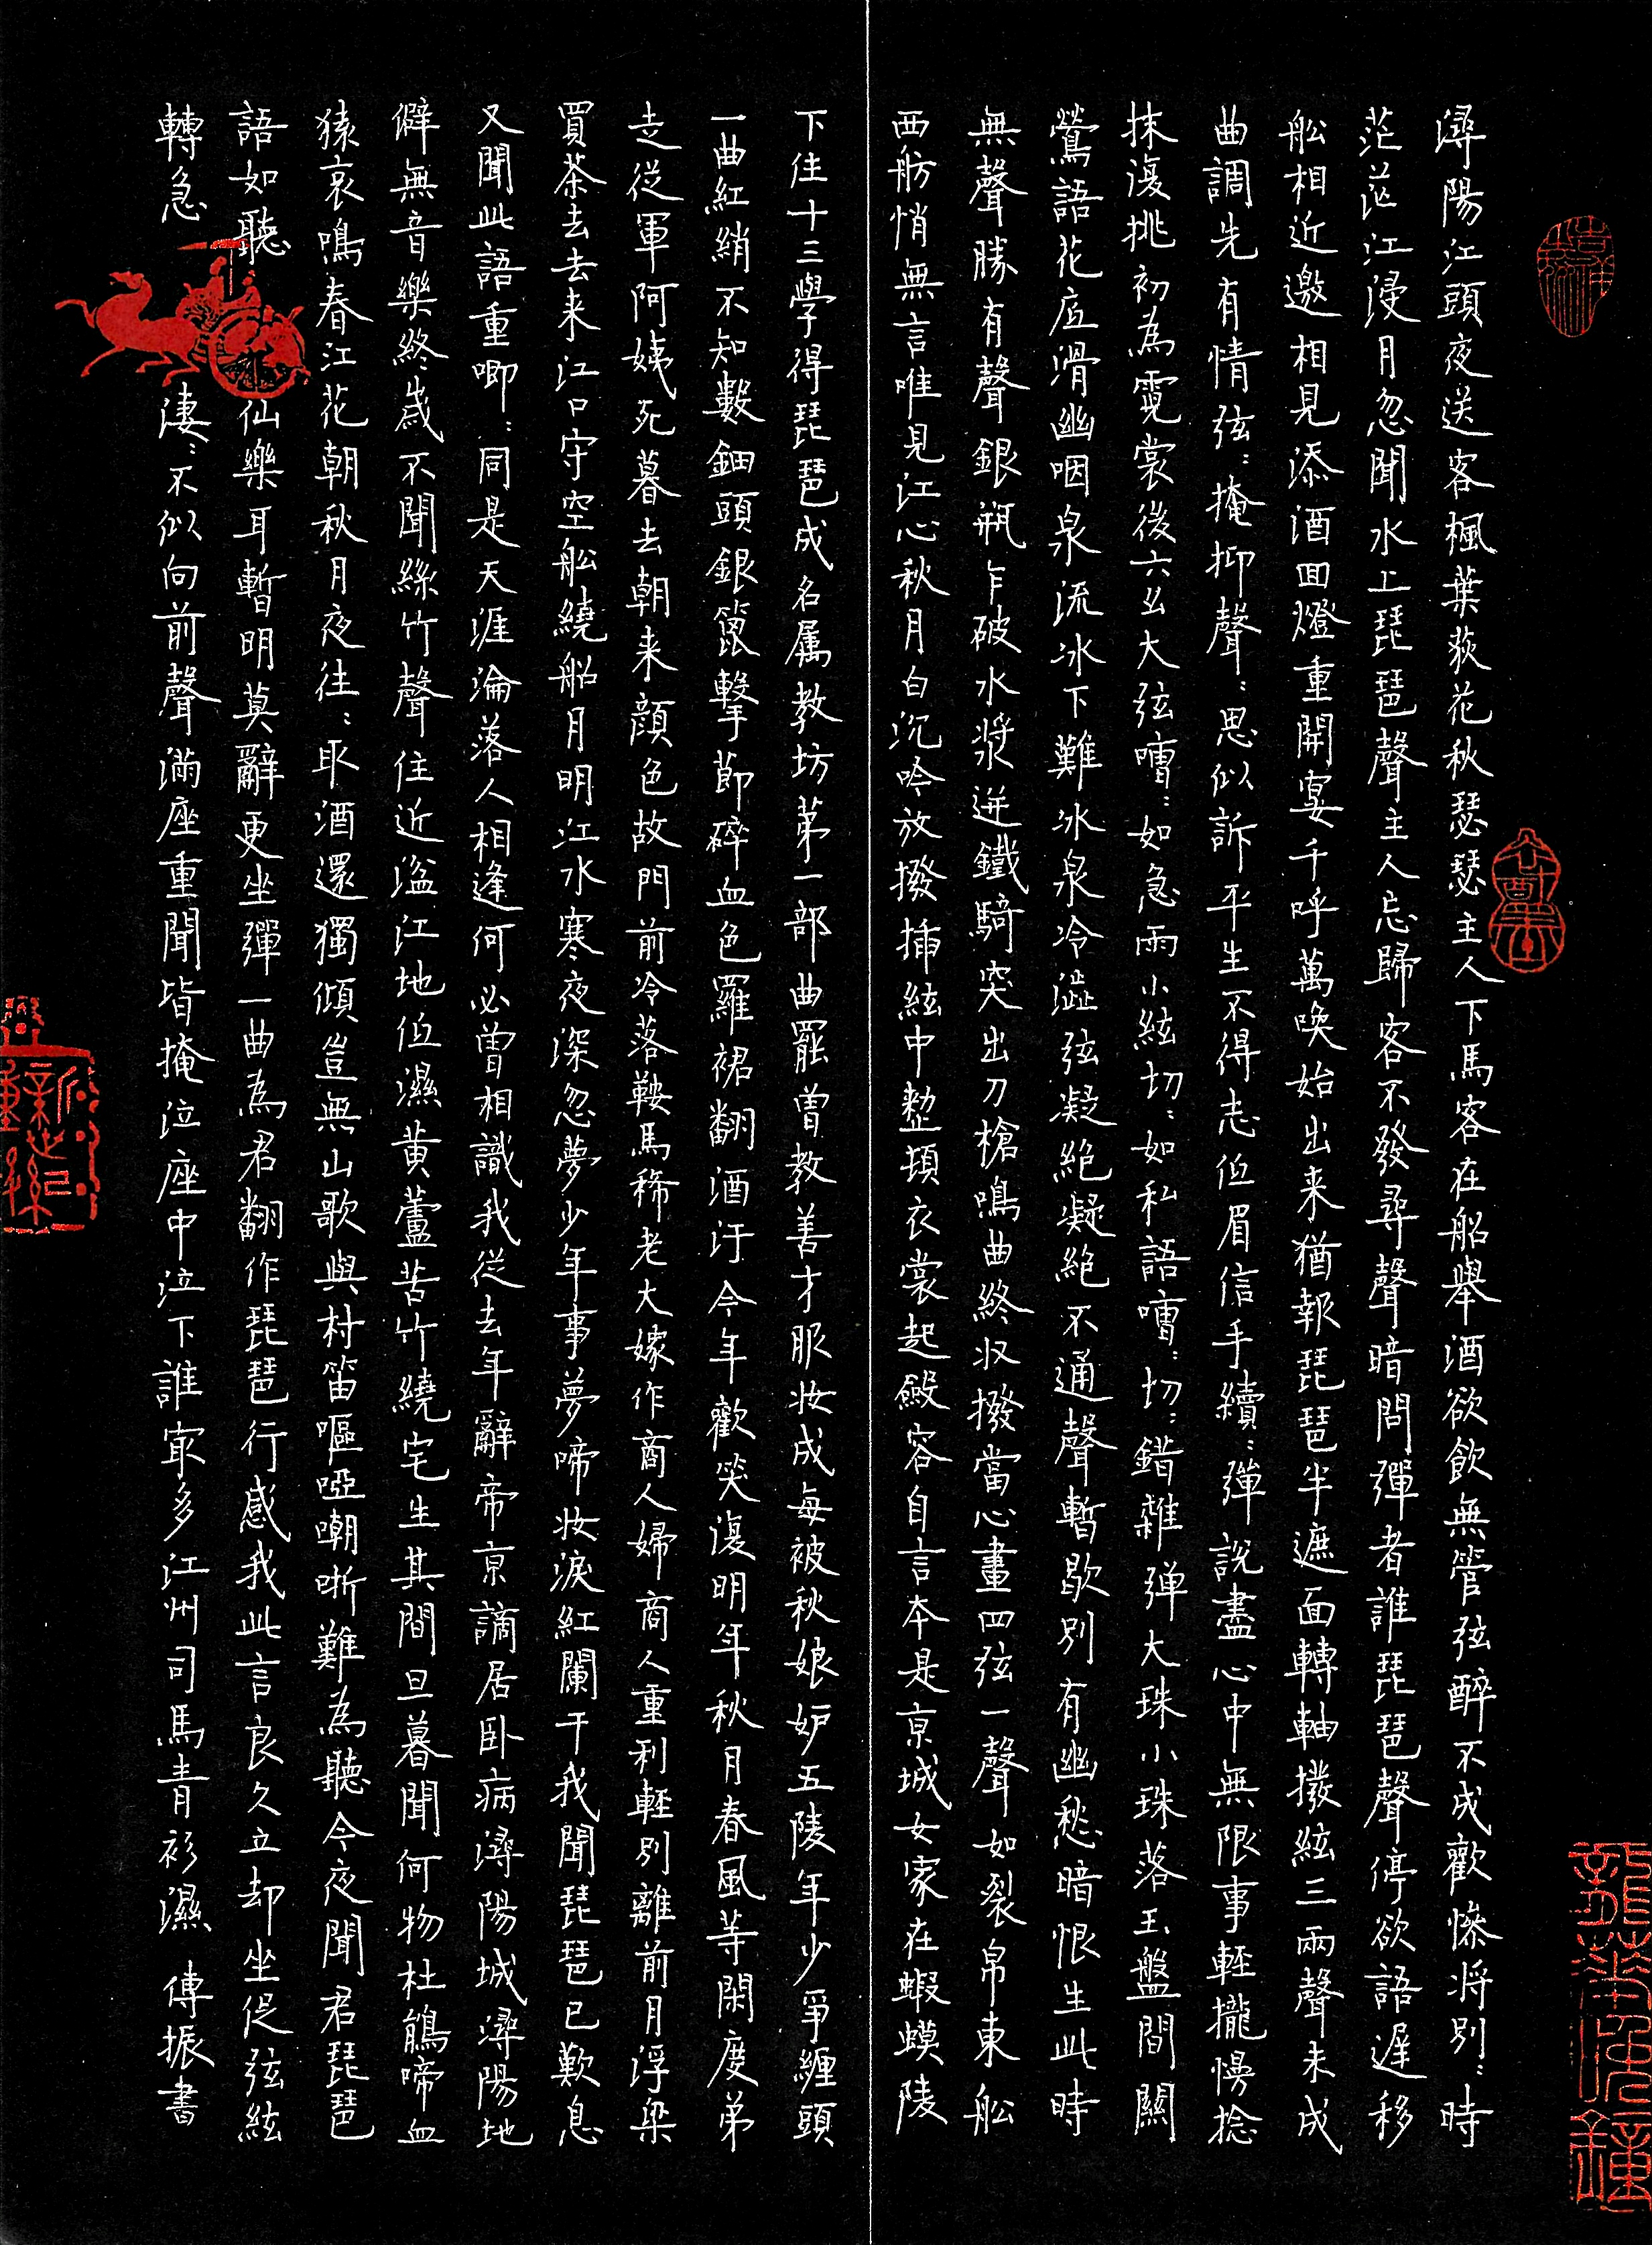 潯陽江頭夜送客楓葉荻花秋瑟瑟主人下馬客在船舉酒欲飲無管弦醉不成歡慘将別：時
茫茫江浸月忽聞水上琵琶聲主人忘歸客不發尋聲暗問彈者誰琵琶聲停欲語遲移
舩相近邀相見添酒回燈重開宴千呼萬喚始出来猶報琵琶半遮面轉軸撥絃三兩聲未成
曲調先有情弦：掩抑聲：思似訴平生不得志低眉信手續：彈說盡心中無限事輕攏慢捻
抹復挑初為霓裳後六幺大弦嘈：如急雨小絃切：如私語嘈：切：錯雜弹大珠小珠落玉盤間關
鶯語花底滑幽咽泉流冰下難冰泉冷澁弦凝絕凝絕不通聲暫歇別有幽愁暗恨生此時
無聲勝有聲銀瓶乍破水漿迸鐵騎突出刀槍鳴曲終収撥當心畫四弦一聲如裂帛東舩
西舫悄無言唯見江心秋月白沉吟放撥插絃中整頓衣裳起斂容自言本是京城女家在蝦蟆陵
下住十三學得琵琶成名属教坊第一部曲罷曽教善才服妆成每被秋娘妒五陵年少爭纏頭
一曲紅綃不知數鈿頭銀篦擊節碎血色羅裙翻酒汙今年歡笑復明年秋月春風等閑度弟
走従軍阿姨死暮去朝来顔色故門前冷落鞍馬稀老大嫁作商人婦商人重利輕別離前月浮梁
買茶去去来江口守空舩繞船月明江水寒夜深忽夢少年事夢啼妆淚紅闌干我聞琵琶已歎息
又聞此語重唧：同是天涯淪落人相逢何必曽相識我從去年辭帝京謫居卧病潯陽城潯陽地
僻無音樂終歲不聞絲竹聲住近湓江地低濕黄蘆苦竹繞宅生其間旦暮聞何物杜鵑啼血
猿哀鳴春江花朝秋月夜往：取酒還獨傾豈無山歌與村笛嘔啞嘲哳難為聽今夜聞君琵琶
語如聽仙樂耳暫明莫辭更坐彈一曲為君翻作琵琶行感我此言良久立却坐促弦絃
轉急淒：不似向前聲滿座重聞皆掩泣座中泣下誰家多江州司馬青衫濕　傅振書